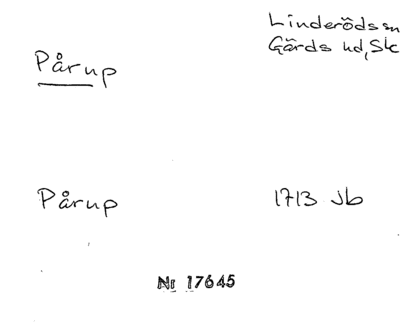 Linderödssn
Gärds hd, Sk
Pårup
Pårup 1713 Jb
Nr 17645